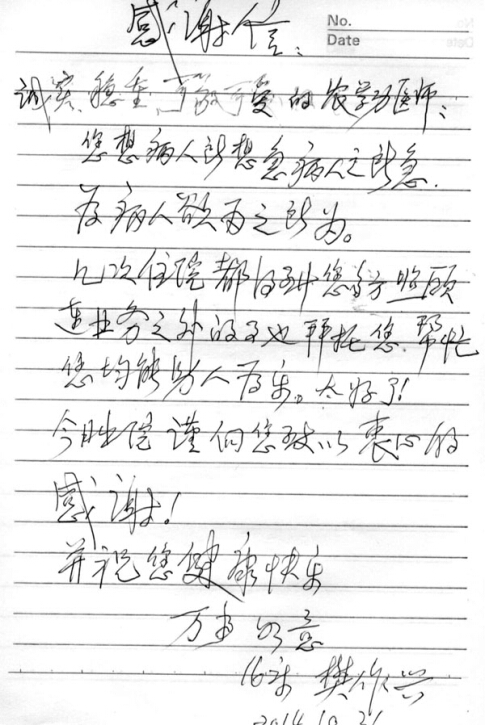 感谢信:
No.
Date
诚实、稳重、可敬可爱的农学方医师:
您想病人所想急病人之所急.
为病人欲为之所为。
几次住院都得到您多方照顾
连业务之外的事也拜托您.帮忙
您均能助人为乐。太好了!
今出院谨向您致以衷心的
感谢!
并祝您健康快乐
万事如意
16床 樊作兴
2014.10.21